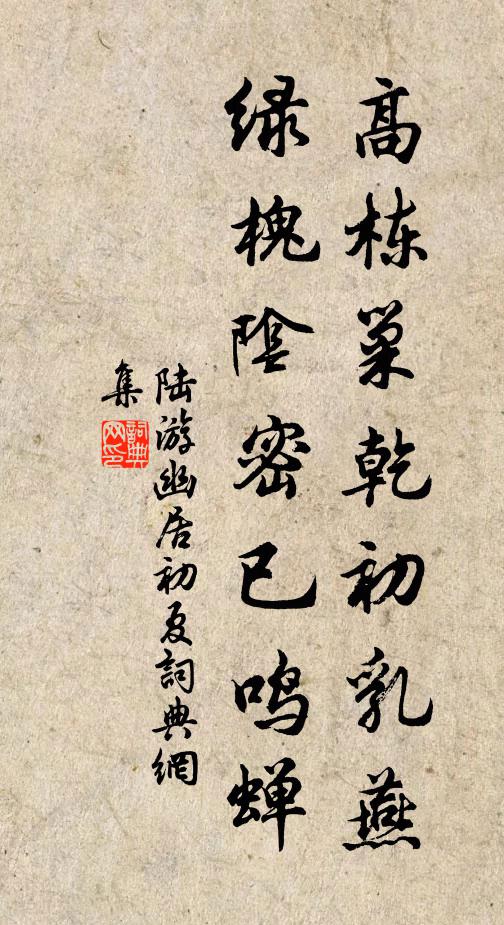 高栋巢乾初乳燕
绿槐陰密已鸣蝉
陆游幽居初夏詞典網
集
詞典
网印